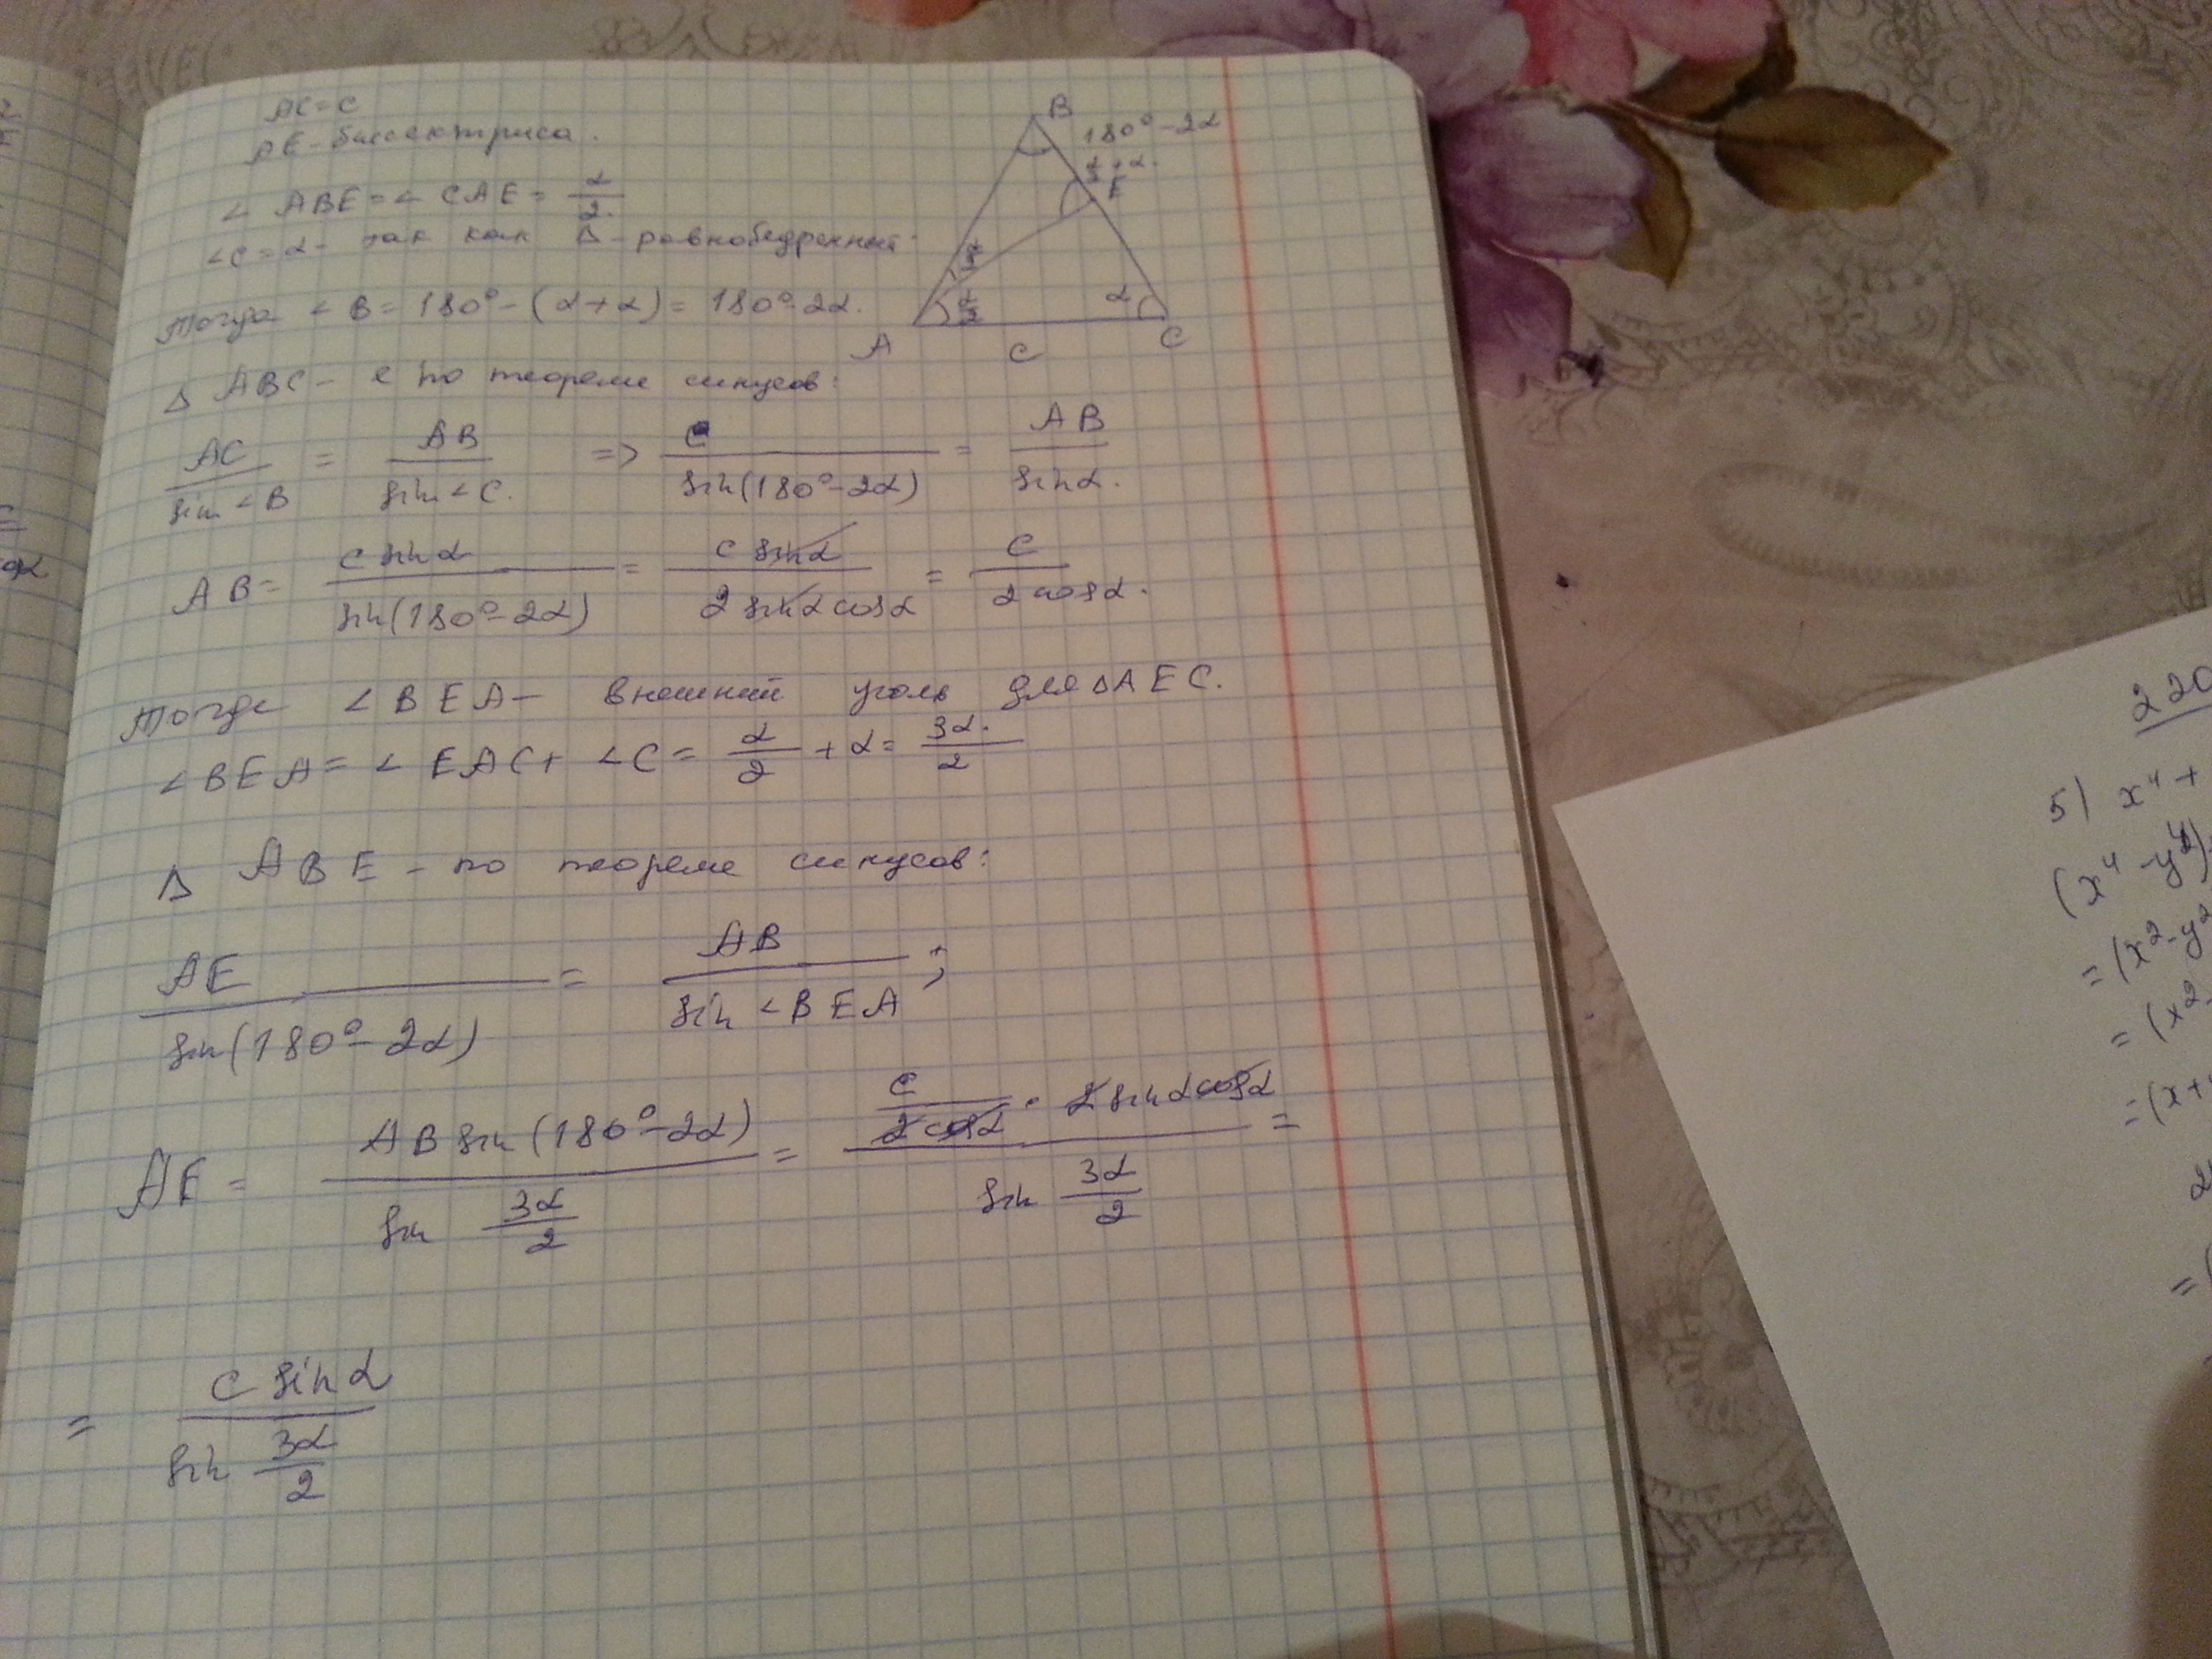 AC = C
AE - биссектриса.
∠ ABE = ∠ CAE = α/2.
∠C = α - так как Δ - равнобедренный.
Тогда ∠ B = 180° - (α + α) = 180° - 2α.
B
180° - 2α
α/2 + α.
E
α/2
α/2
α
A
C
C
Δ ABC - по теореме синусов:
AC / sin ∠B = AB / sin ∠C. => C / sin(180° - 2α) = AB / sin α.
AB = C sin α / sin(180° - 2α) = C sin α / 2 sin α cos α = C / 2 cos α.
Тогда ∠ BEA - внешний уголь для Δ AEC.
∠ BEA = ∠ EAC + ∠C = α/2 + α = 3α/2.
Δ ABE - по теореме синусов:
AE / sin(180° - 2α) = AB / sin ∠BEA ;
AE = AB sin(180° - 2α) / sin 3α/2 = C / 2 cos α · 2 sin α cos α / sin 3α/2 =
= C sin α / sin 3α/2
220
5) x⁴ +
(x⁴ - y⁴)
= (x² - y²
= (x² -
= (x +
2
= (